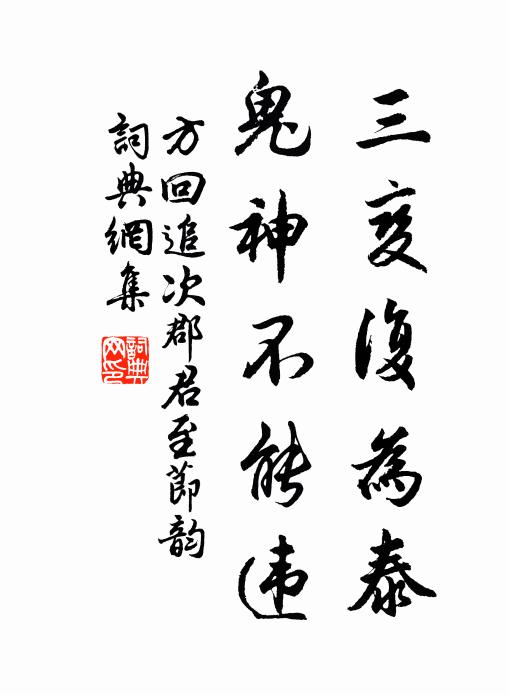 三变復為泰
鬼神不能违
方回追次郡君至節韵
詞典網集
詞典
网印